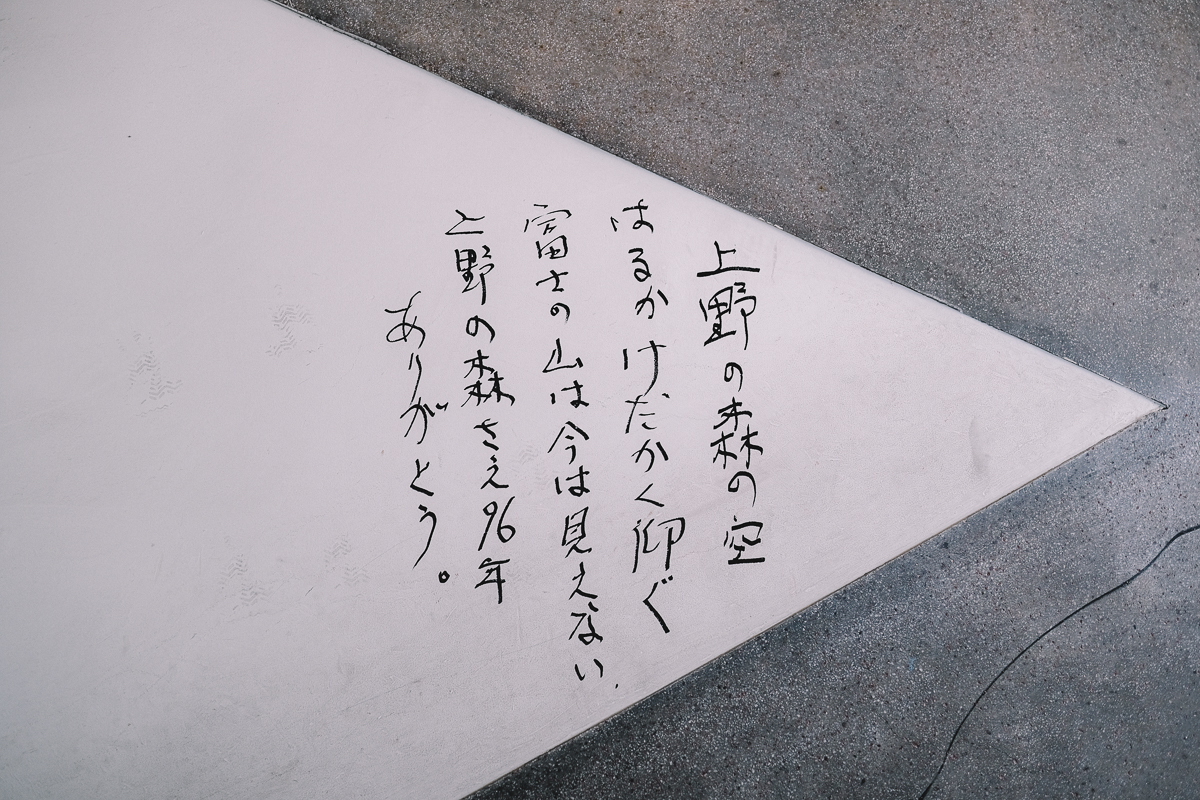 上野の森の空
はるかけだかく仰ぐ
富士の山は今は見えない.
上野の森さえ96年
ありがとう。